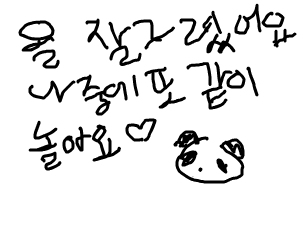 을 잘그렸어요
나중에또 같이
놀아요♡